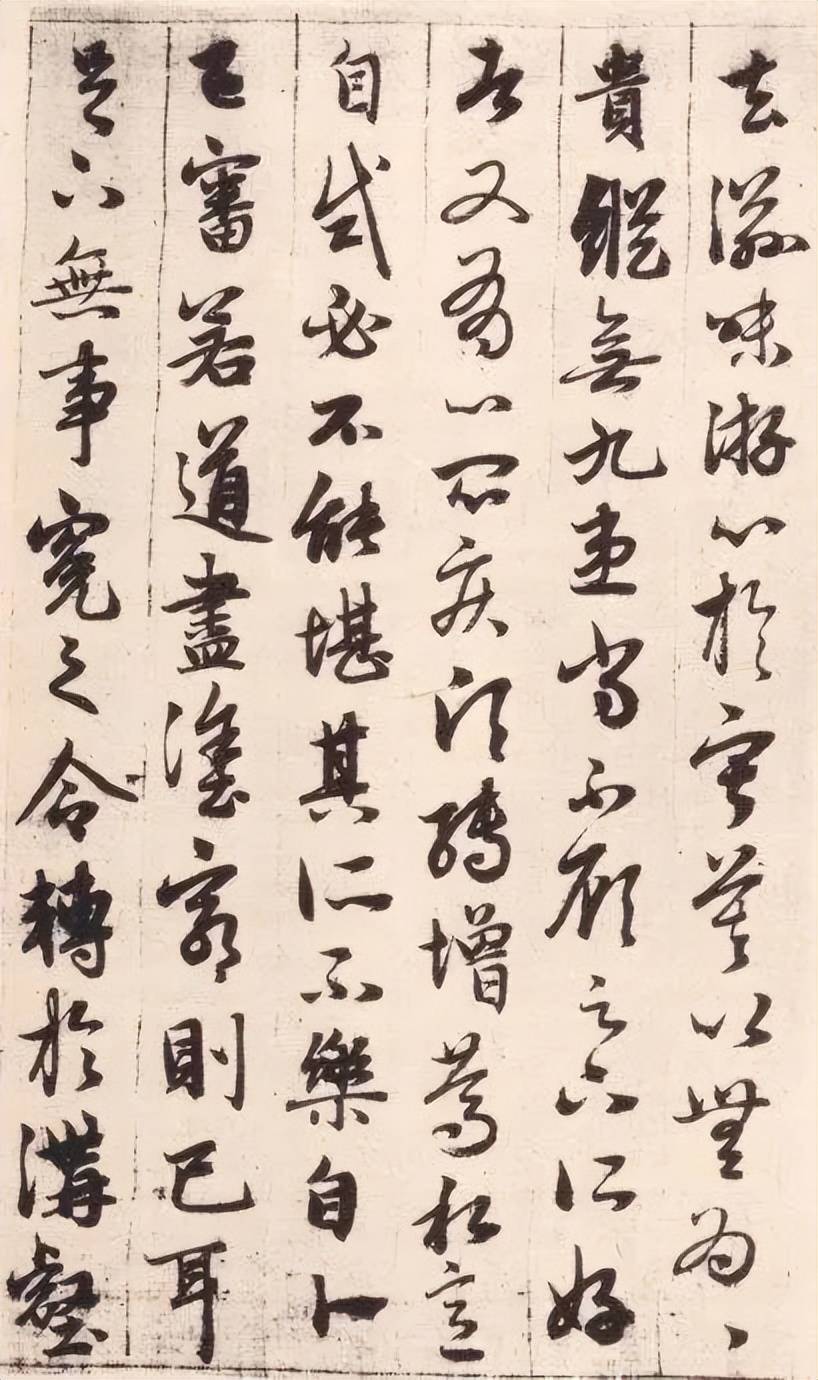 去滋味游心於寂莫以無為為
貴縱無九患尚不顧足下所好
者又有心悶疾頃轉增篤私意
自試必不能堪其所不樂自卜
已審若道盡塗窮則已耳
足下無事冤之令轉於溝壑